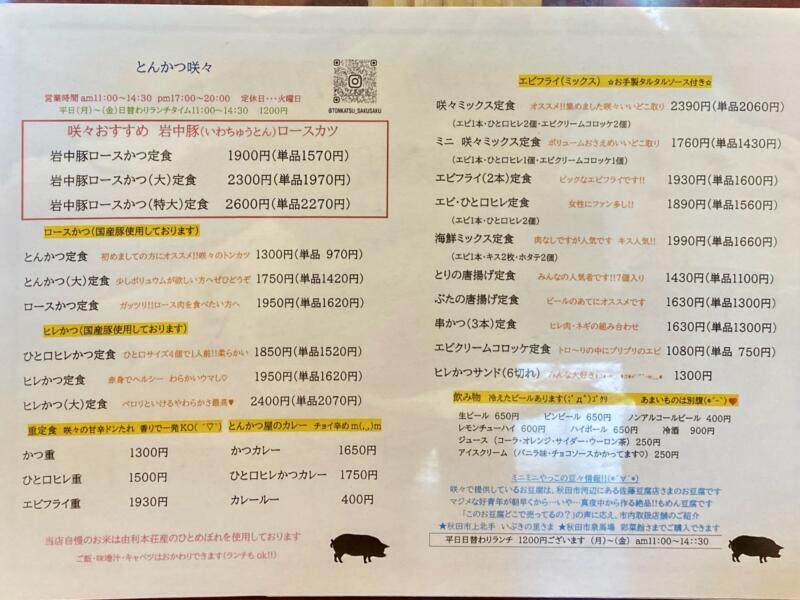 とんかつ咲々
@TONKATSU_SAKUSAKU
営業時間 am11:00～14:30 pm17:00～20:00 定休日・・・火曜日
平日(月)～(金)日替わりランチタイム11:00～14:30 1200円
咲々おすすめ 岩中豚(いわちゅうとん)ロースカツ
岩中豚ロースかつ定食 1900円(単品1570円)
岩中豚ロースかつ(大)定食 2300円(単品1970円)
岩中豚ロースかつ(特大)定食 2600円(単品2270円)
ロースかつ(国産豚使用しております)
とんかつ定食 初めましての方にオススメ!!咲々のトンカツ 1300円(単品 970円)
とんかつ(大)定食 少しボリュウムが欲しい方へぜひどうぞ 1750円(単品1420円)
ロースかつ定食 ガッツリ!!ロース肉を食べたい方へ 1950円(単品1620円)
ヒレかつ(国産豚使用しております)
ひと口ヒレかつ定食 ひと口サイズ4個で1人前!!柔らかい 1850円(単品1520円)
ヒレかつ定食 赤身でヘルシー わらかいウマし♡ 1950円(単品1620円)
ヒレかつ(大)定食 ペロリといけるやわらかさ最高♥ 2400円(単品2070円)
重定食 咲々の甘辛ドンたれ 香りで一発KO(´▽`)
かつ重 1300円
ひと口ヒレ重 1500円
エビフライ重 1930円
とんかつ屋のカレー チョイ辛めm(._.)m
かつカレー 1650円
ひと口ヒレかつカレー 1750円
カレールー 400円
当店自慢のお米は由利本荘産のひとめぼれを使用しております
ご飯・味噌汁・キャベツはおかわりできます(ランチもok!!)
エビフライ(ミックス) ☆お手製タルタルソース付き☆
咲々ミックス定食 オススメ!!集めました咲々いいどこ取り 2390円(単品2060円)
(エビ1本・ひと口ヒレ2個・エビクリームコロッケ2個)
ミニ 咲々ミックス定食 ボリュームおさえめいいどこ取り 1760円(単品1430円)
(エビ1本・ひと口ヒレ1個・エビクリームコロッケ1個)
エビフライ(2本)定食 ビックなエビフライです!! 1930円(単品1600円)
エビ・ひと口ヒレ定食 女性にファン多し!! 1890円(単品1560円)
(エビ1本・ひと口ヒレ2個)
海鮮ミックス定食 肉なしですが人気です キス人気!! 1990円(単品1660円)
(エビ1本・キス2枚・ホタテ2個)
とりの唐揚げ定食 みんなの人気者です!!7個入り 1430円(単品1100円)
ぶたの唐揚げ定食 ビールのあてにオススメです 1630円(単品1300円)
串かつ(3本)定食 ヒレ肉・ネギの組み合わせ 1630円(単品1300円)
エビクリームコロッケ定食 トロ～りの中にプリプリのエビ 1080円(単品 750円)
ヒレかつサンド(6切れ) みんな大好き 1300円
飲み物 冷えたビールあります(;ﾟдﾟ)ｺﾞｸﾘ あまいものは別腹
生ビール 650円 ビンビール 650円 ノンアルコールビール 400円
レモンチューハイ 600円 ハイボール 650円 冷酒 900円
ジュース (コーラ・オレンジ・サイダー・ウーロン茶) 250円
アイスクリーム (バニラ味・チョコソースかかってます♡) 250円
ミニミニやっこの豆々情報!!(*´∀`*)
咲々で提供しているお豆腐は、秋田市河辺にある佐藤豆腐店さまのお豆腐です
マジメな好青年が朝早くから・・・いや・・・真夜中から作る絶品!!もめん豆腐です
「このお豆腐どこで売ってるの？」の声に応え、市内取扱店舗のご紹介
★秋田市上北手 いぶきの里さま ★秋田市泉馬場 彩菜館さまでご購入できます
平日日替わりランチ 1200円ございます (月)～(金) am11:00～14:30